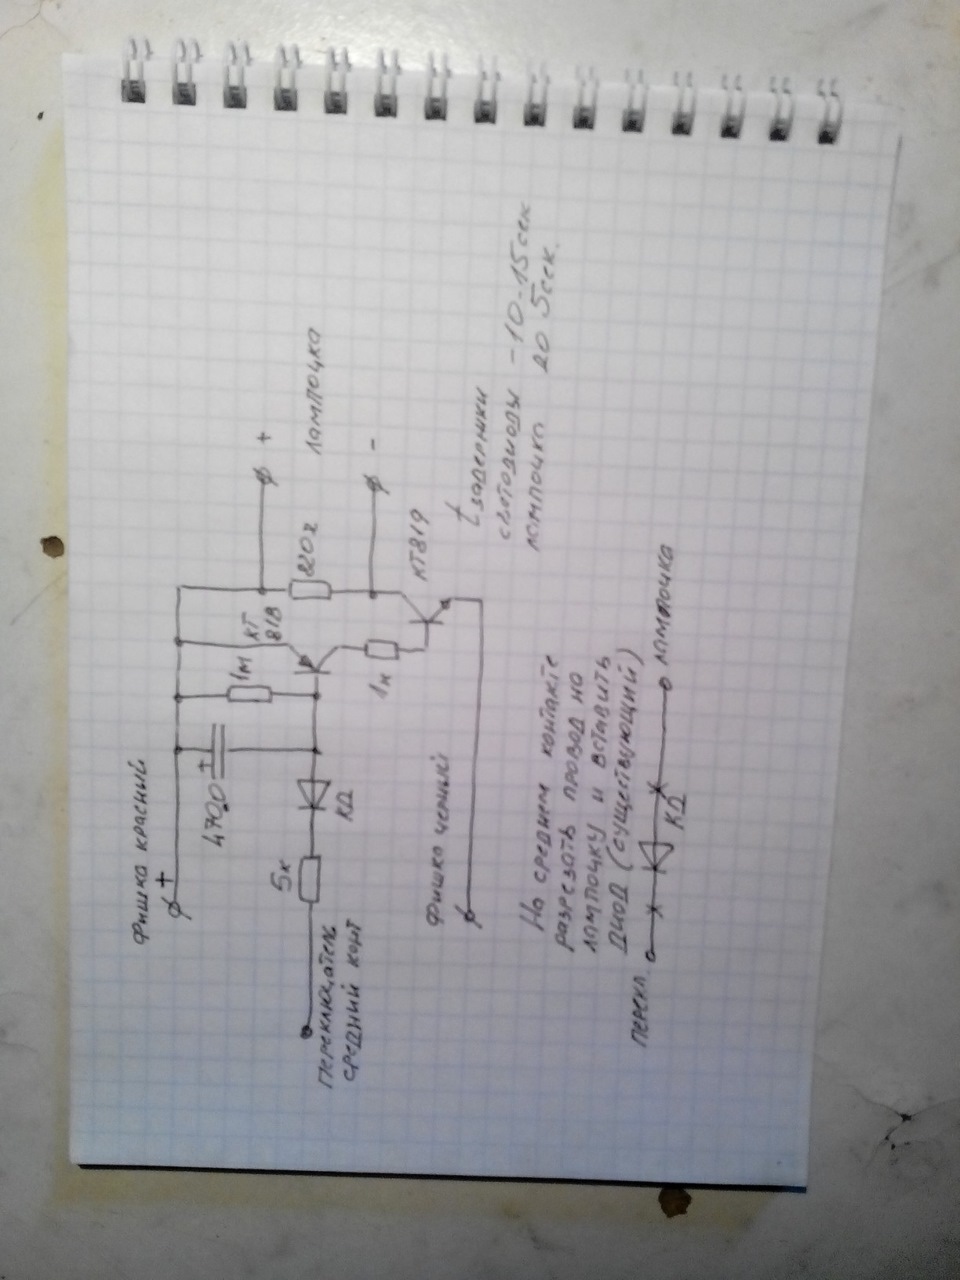 Фишка красный
+
+
4700
1м
КТ
818
220 2
+
лампочка
-
5к
КД
1к
КТ819
Переключатель
средний конт
Фишка черный
t задержки
светодиоды -10-15сек
лампочка до 5сек.
На среднем контакте
разрезать провод на
лампочку и вставить
диод (существующий)
перекл.
КД
лампочка